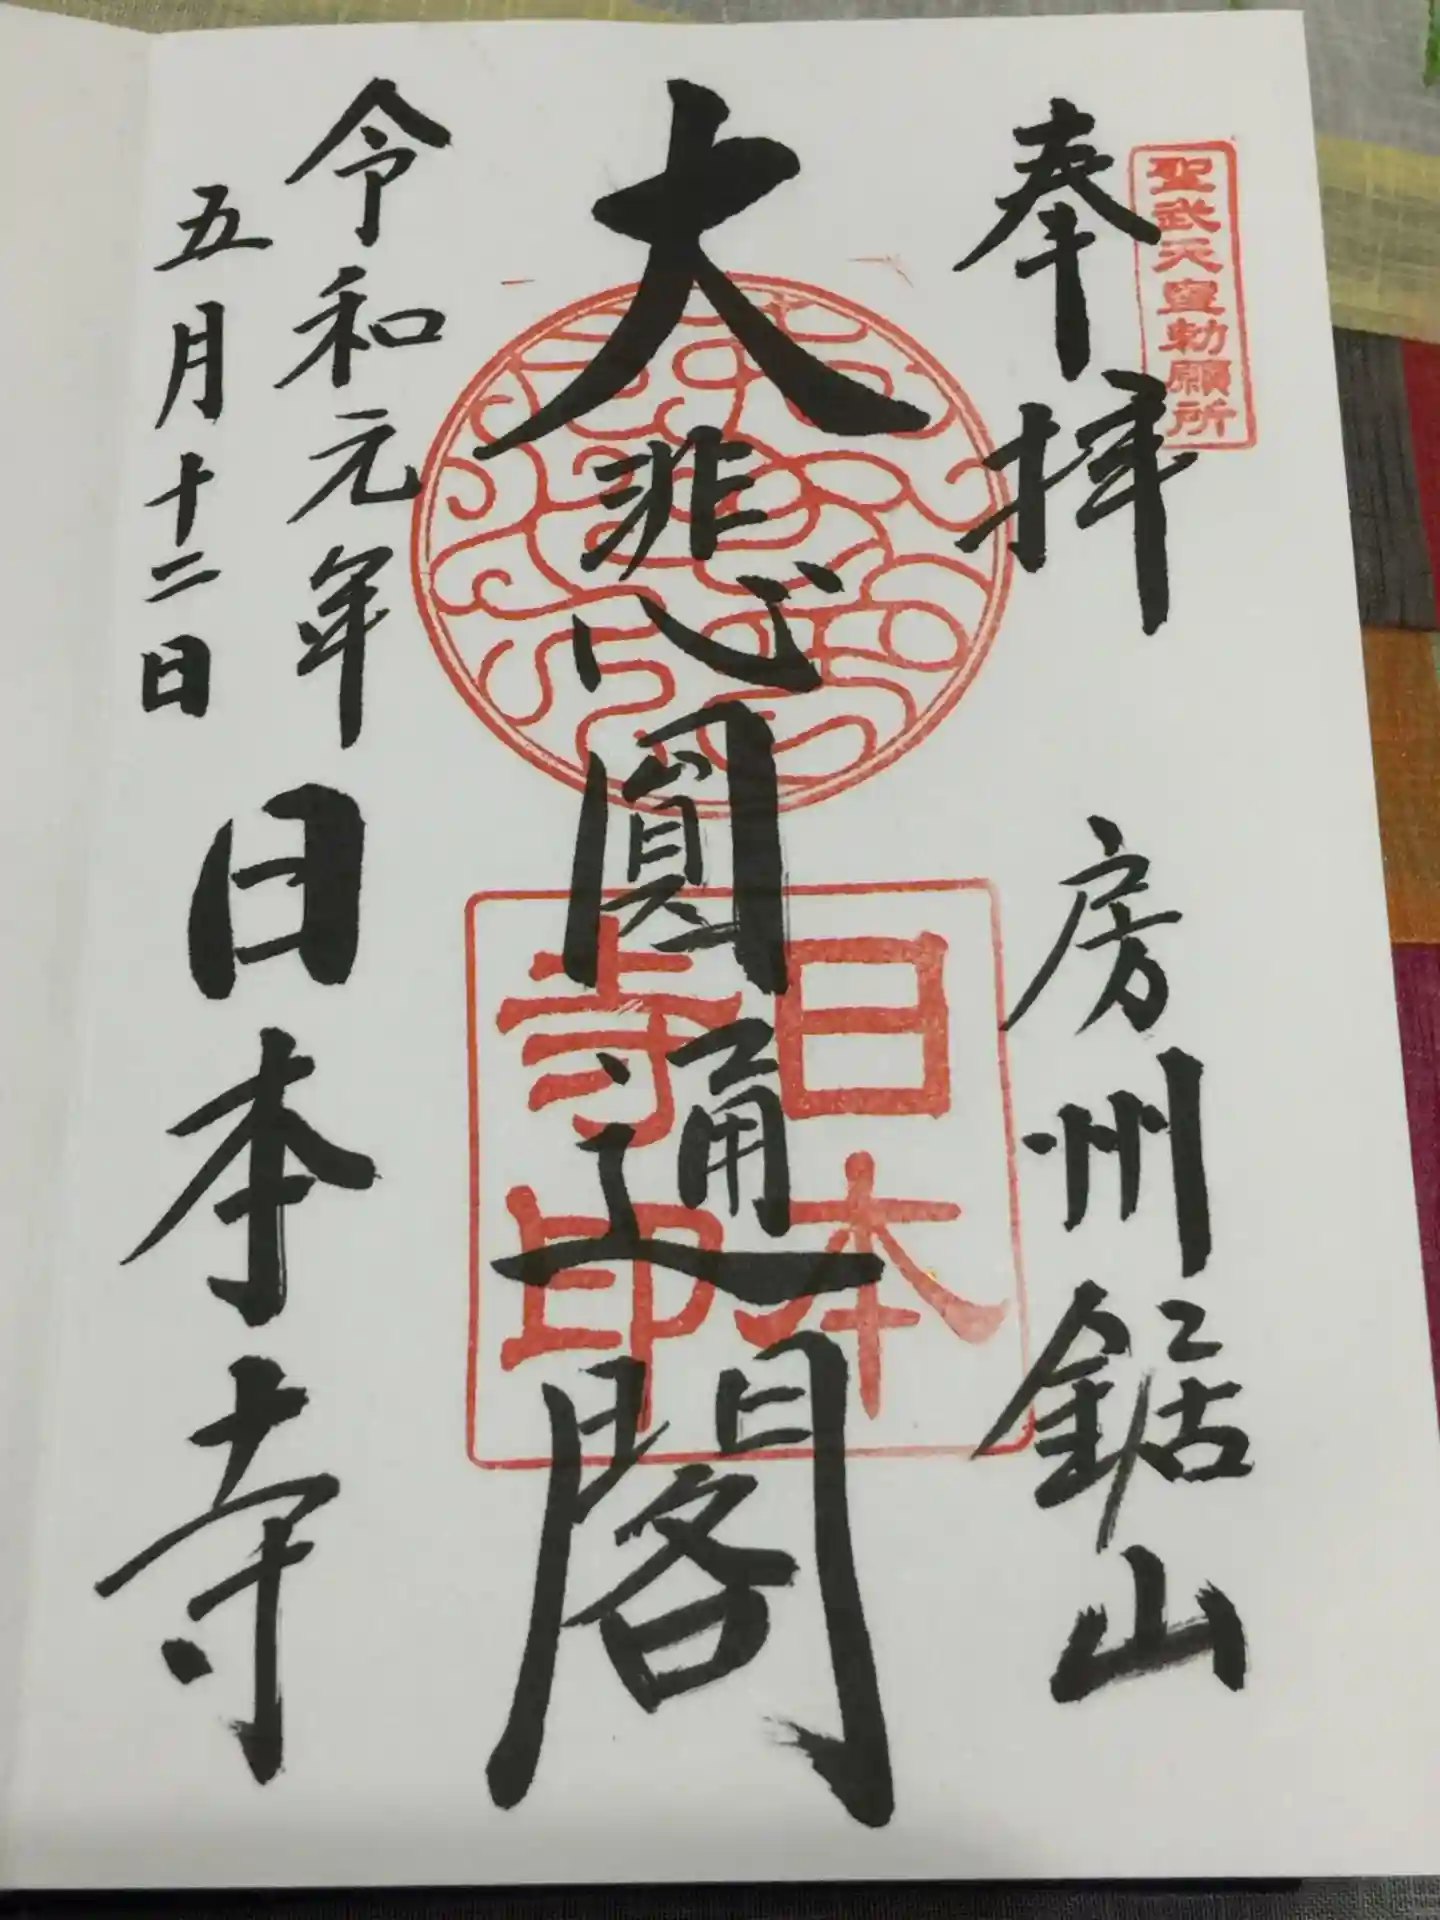 聖武天皇勅願所
奉拝
房州鋸山
大悲心圓通閣
日本寺印
令和元年
五月十二日
日本寺